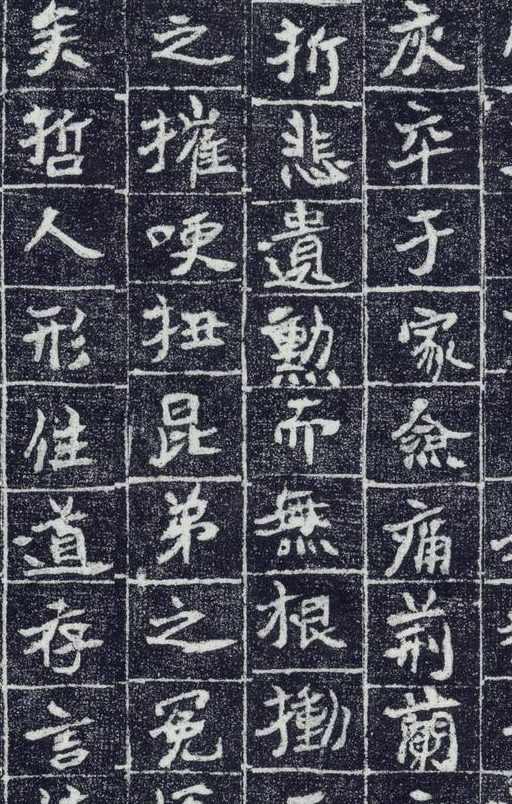 灰卒于家僉痛荊蘭
折悲遺勲而無根慟
之摧哽扭昆弟之冤
矣哲人形往道存言